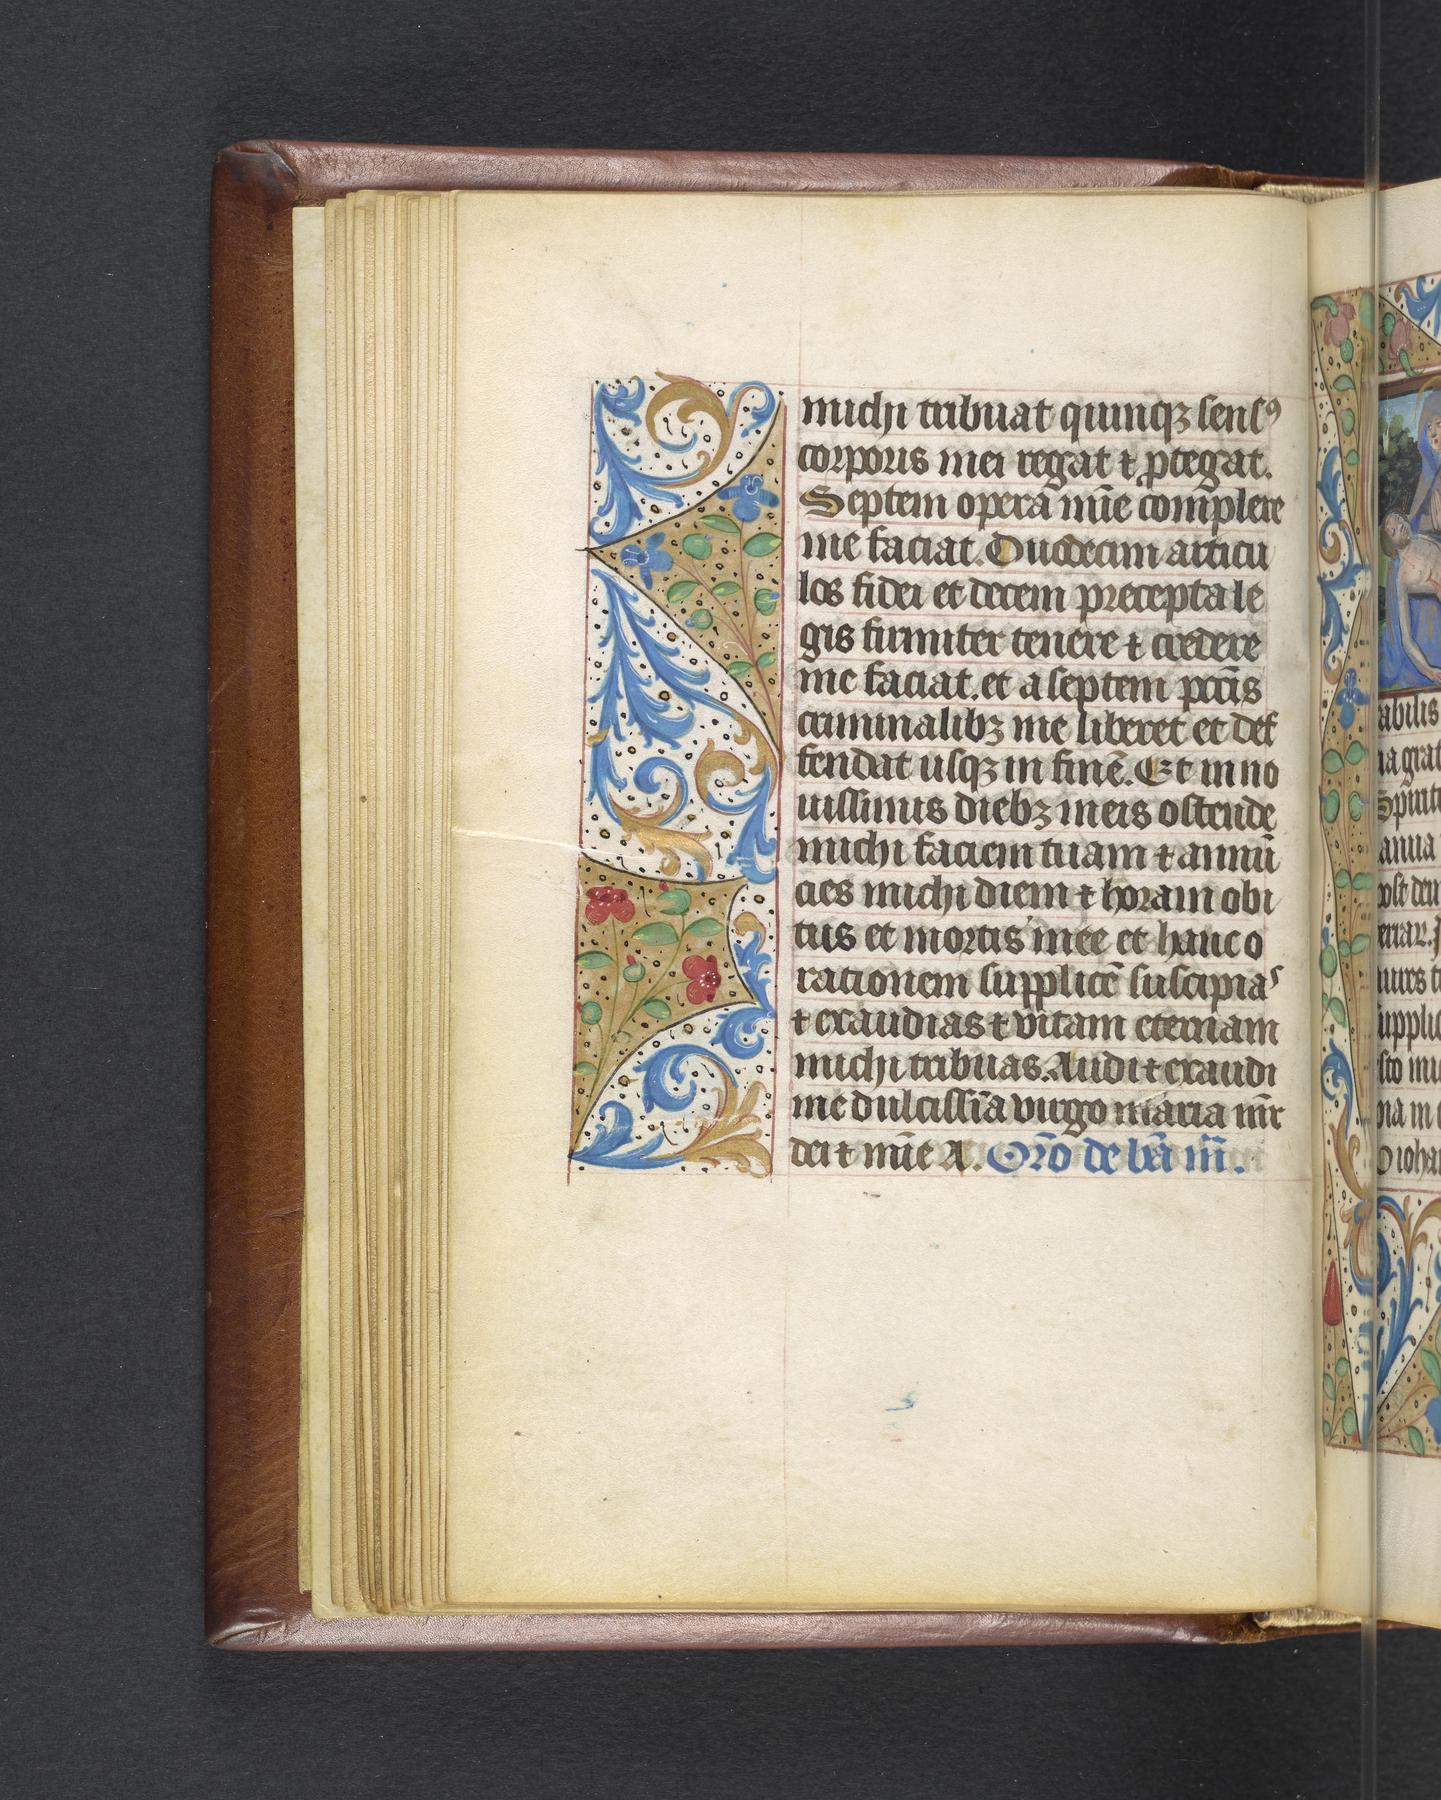 michi tribuat quinqꝫ sensꝰ
corporis mei regat ⁊ ꝓtegat.
Septem opera mīe complere
me faciat. Duodecim articu
los fidei et decem precepta le
gis firmiter tenere ⁊ credere
me faciat. et a septem pccīs
criminalibꝫ me liberet et def
fendat usqꝫ in finē. Et in no
uissimis diebꝫ meis ostende
michi faciem tuam ⁊ annū
cies michi diem ⁊ horam obi
tus et mortis mee et hanc o
rationem supplicē suscipias
⁊ exaudias ⁊ vitam eternam
michi tribuas. Audi ⁊ exaudi
me dulcissīa virgo maria mr̄
dei ⁊ mīe A. Or̄o de bā m̄.
abilis
na grat
Spiritu
anua
ost deu
eriar.
uires
supplic
sto mi
na in
O ioha